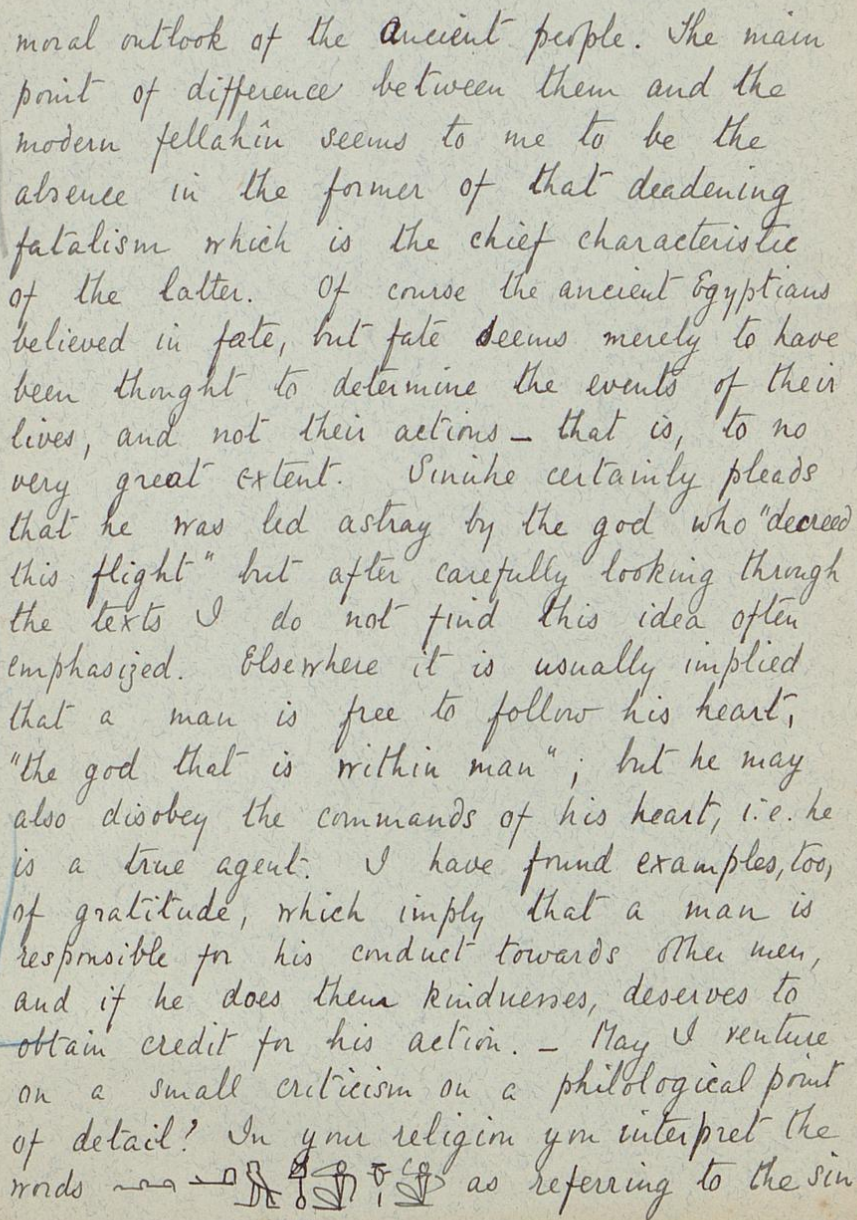 moral outlook of the ancient people. The main
point of difference between them and the
modern fellahîn seems to me to be the
absence in the former of that deadening
fatalism which is the chief characteristic
of the latter. Of course the ancient Egyptians
believed in fate, but fate seems merely to have
been thought to determine the events of their
lives, and not their actions – that is, to no
very great extent. Sinuhe certainly pleads
that he was led astray by the god who "decreed
this flight" but after carefully looking through
the texts I do not find this idea often
emphasized. Elsewhere it is usually implied
that a man is free to follow his heart,
"the god that is within man"; but he may
also disobey the commands of his heart, i.e. he
is a true agent. I have found examples, too,
of gratitude, which imply that a man is
responsible for his conduct towards other men,
and if he does them kindnesses, deserves to
obtain credit for his action. – May I venture
on a small criticism on a philological point
of detail? In your religion you interpret the
words as referring to the sin